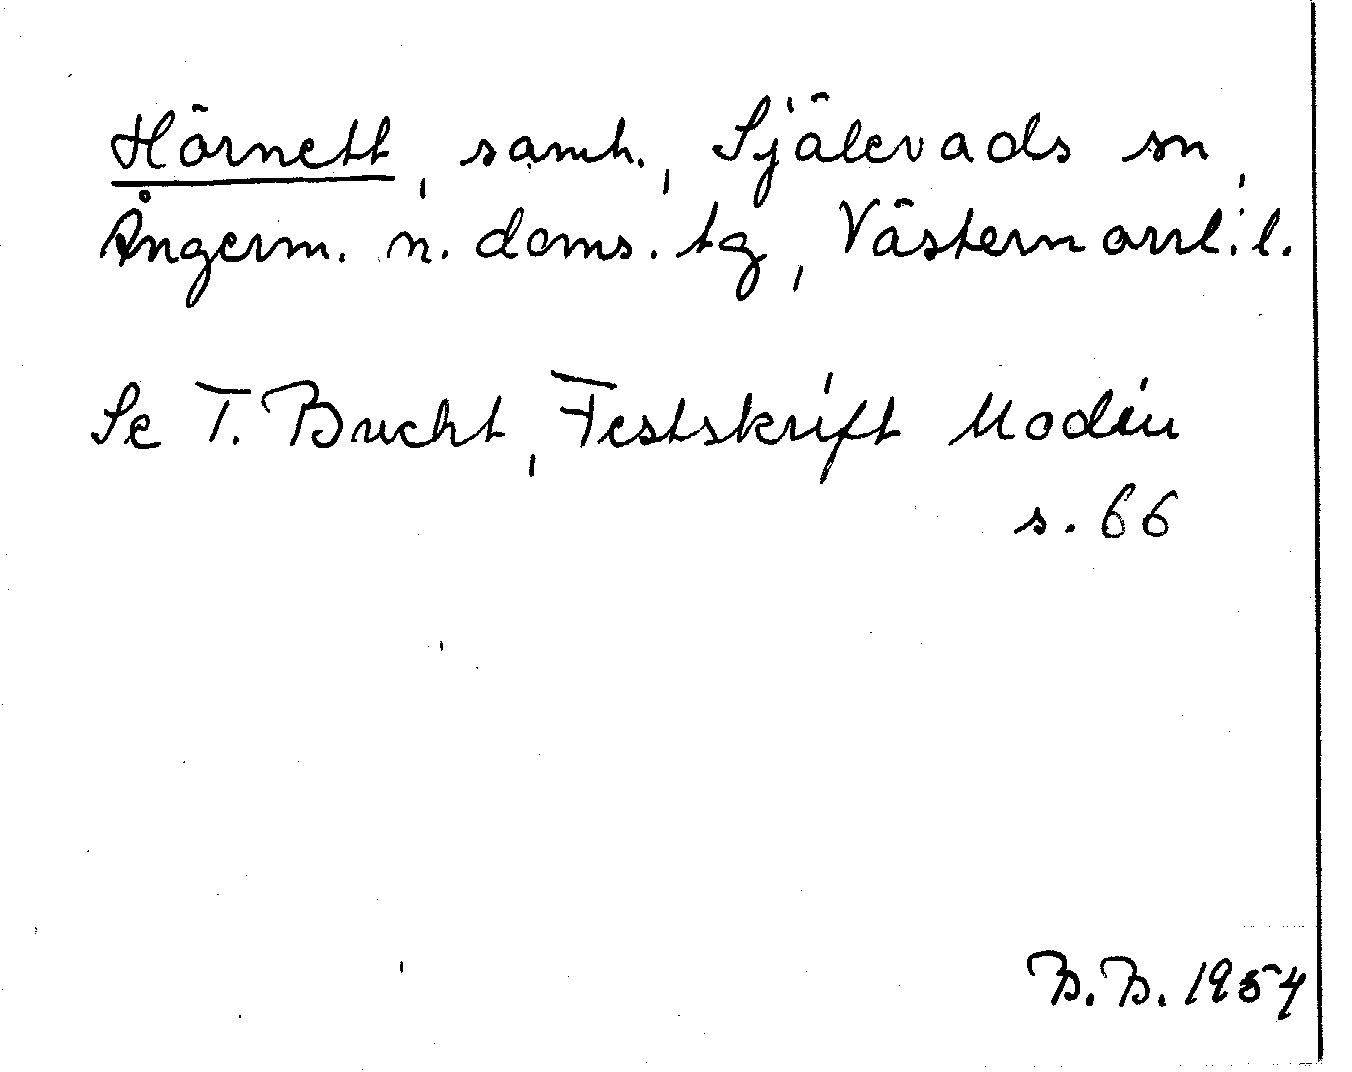 Hörnett, samh., Själevads sn,
Ångerm. n. doms. tg, Västernorrl. l.
Se T. Bucht, Festskrift Modin
s. 66
B. B. 1954